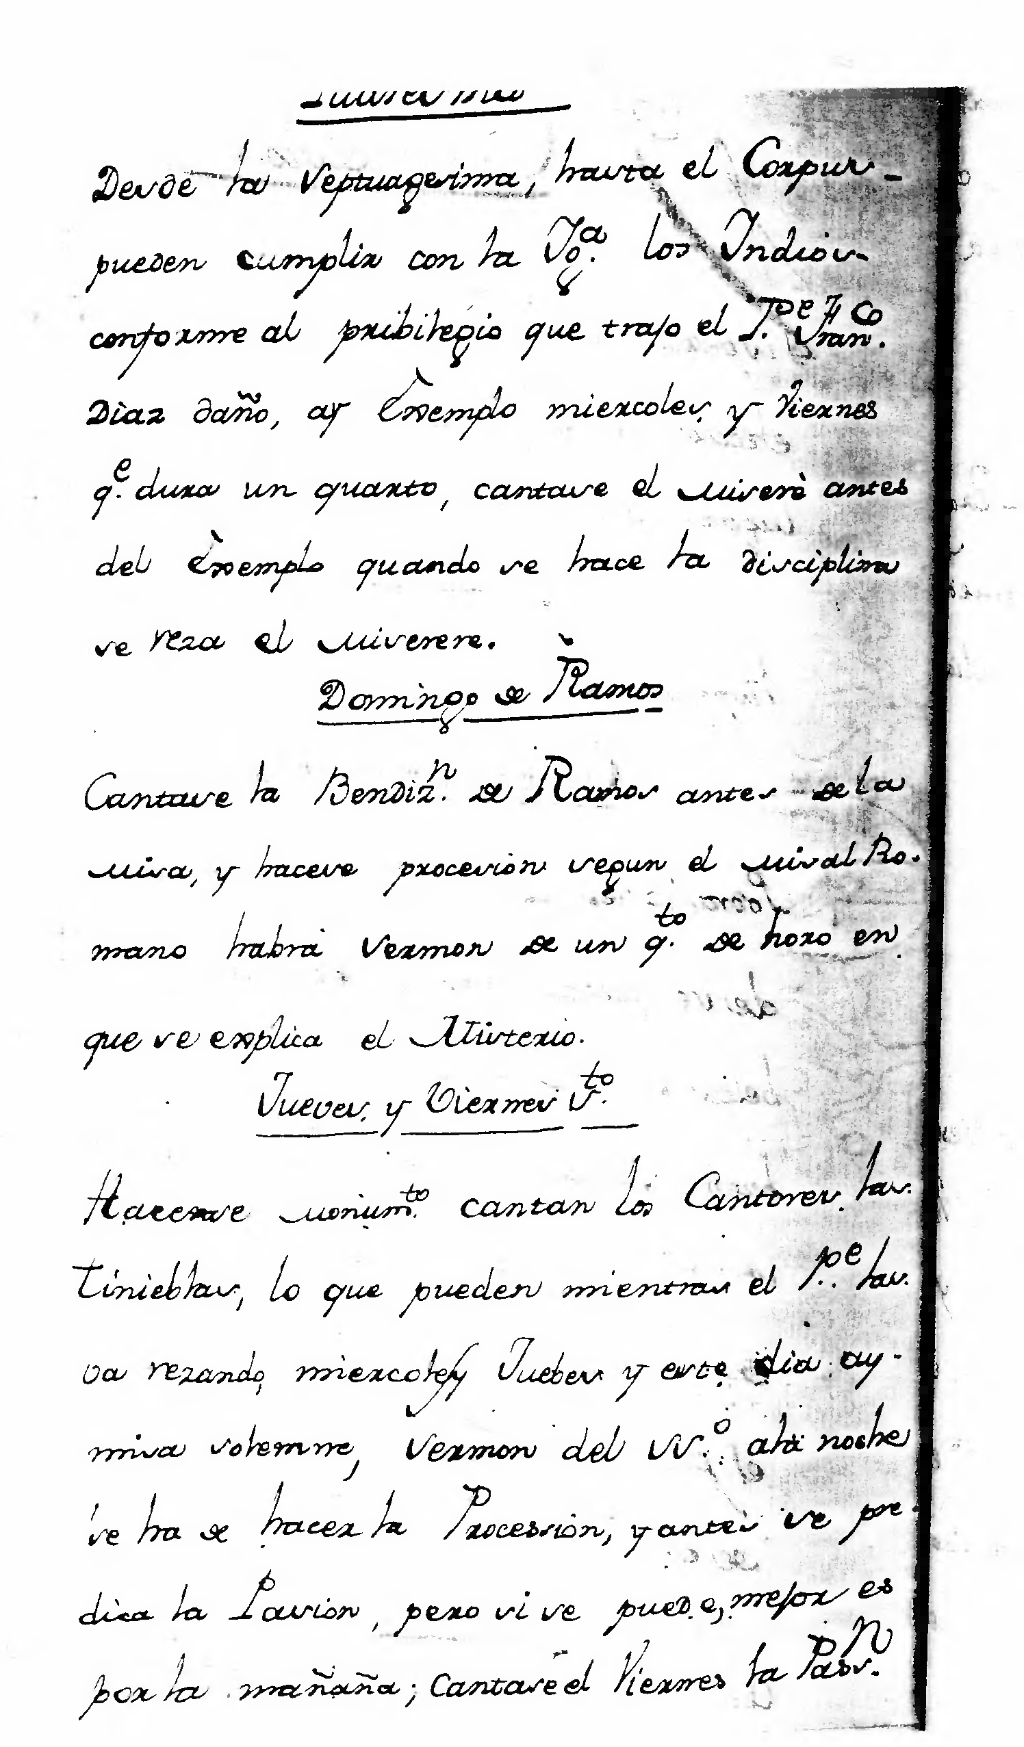 Desde la Septuagesima, hasta el Corpus
pueden cumplir con la Yg.ª los Indios
conforme al pribilegio que trajo el P.e Fran.co
Diaz daño, ay Exemplo miercoles y Viernes
q.e dura un quarto, cantase el Miserè antes
del Exemplo quando se hace la disciplina
se reza el Miserere.
Domingo de Ramos
Cantase la Bendiz.n de Ramos antes de la
Misa, y hacese procesion segun el Misal Ro-
mano habrá Sermon de un q.to de hora en
que se explica el Misterio.
Jueves y Viernes S.to
Hacense Monum.to cantan los Cantores las
Tinieblas, lo que pueden mientras el P.e las
va rezando, miercoles, Juebes y este dia ay
misa solemne, Sermon del SS.o ala noche
se ha de hacer la Procession, y antes se pre-
dica la Pasion, pero si se puede, mejor es
por la mañaña; Cantase el Viernes la Pass.n